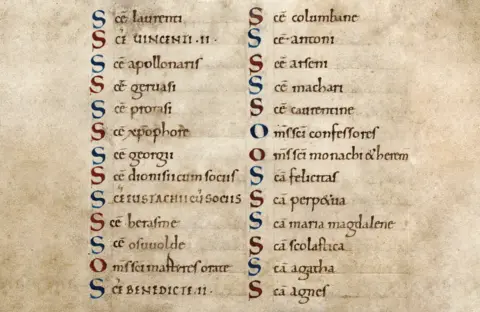 Scē laurenti
Scē VINCENTI·II·
Scē apollonaris
Scē geruasi
Scē protasi
Scē xp̄ophore
Scē georgii
Scē dionisii cum sociis
Scē IUSTACHII CŪ SOCIIS
Scē herasme
Scē osuuolde
Om̄s scī martyres orate
Scē BENEDICTE·II·
Scē columbane
Scē antoni
Scē arseni
Scē machari
Scē taurentine
Om̄s scī confessores
Om̄s scī monachi & herem
Scā felicitas
Scā perp&ua
Scā maria magdalene
Scā scolastica
Scā agatha
Scā agnes